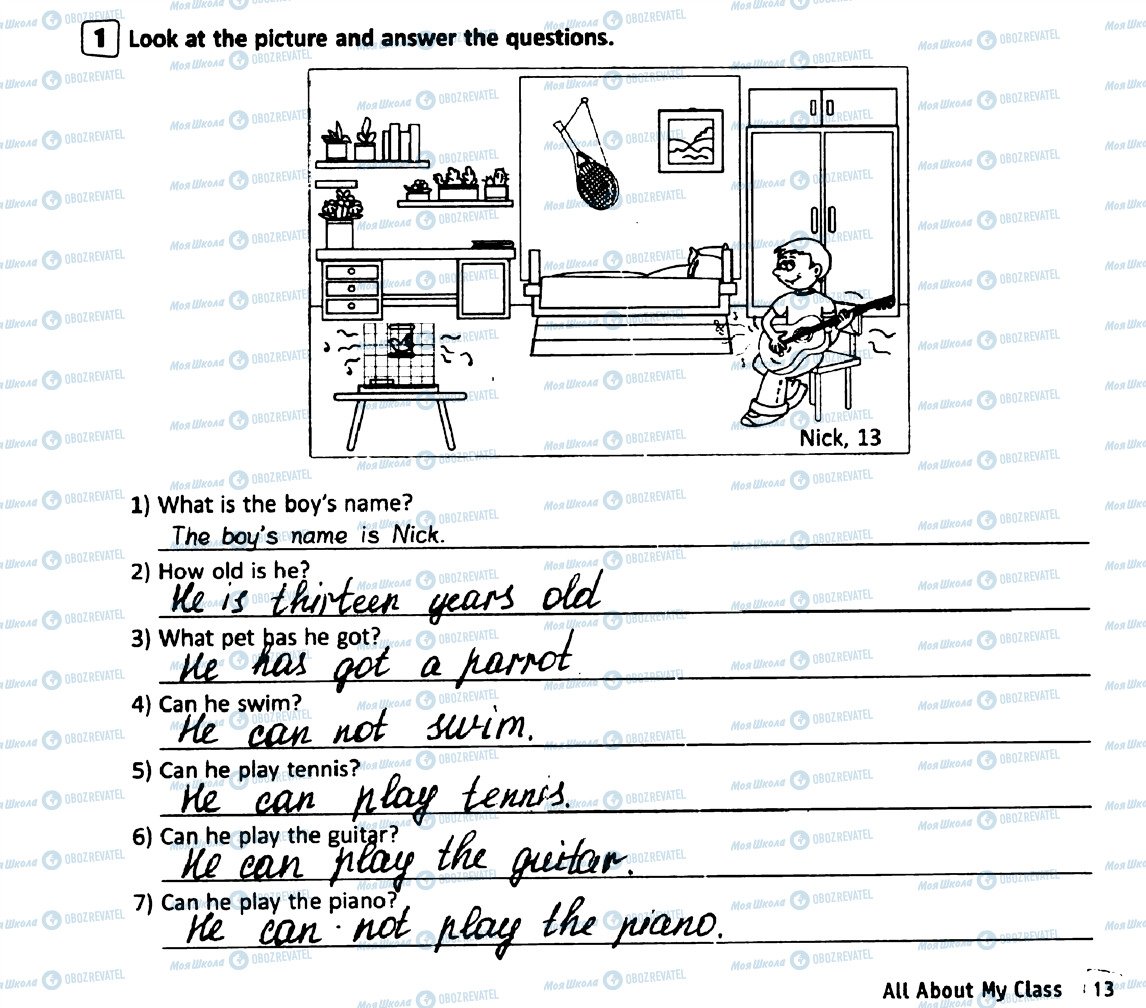 1 Look at the picture and answer the questions.
Nick, 13
1) What is the boy's name?
The boy's name is Nick.
2) How old is he?
He is thirteen years old
3) What pet has he got?
He has got a parrot
4) Can he swim?
He can not swim.
5) Can he play tennis?
He can play tennis.
6) Can he play the guitar?
He can play the guitar.
7) Can he play the piano?
He can not play the piano.
All About My Class 13
Моя Школа OBOZREVATEL